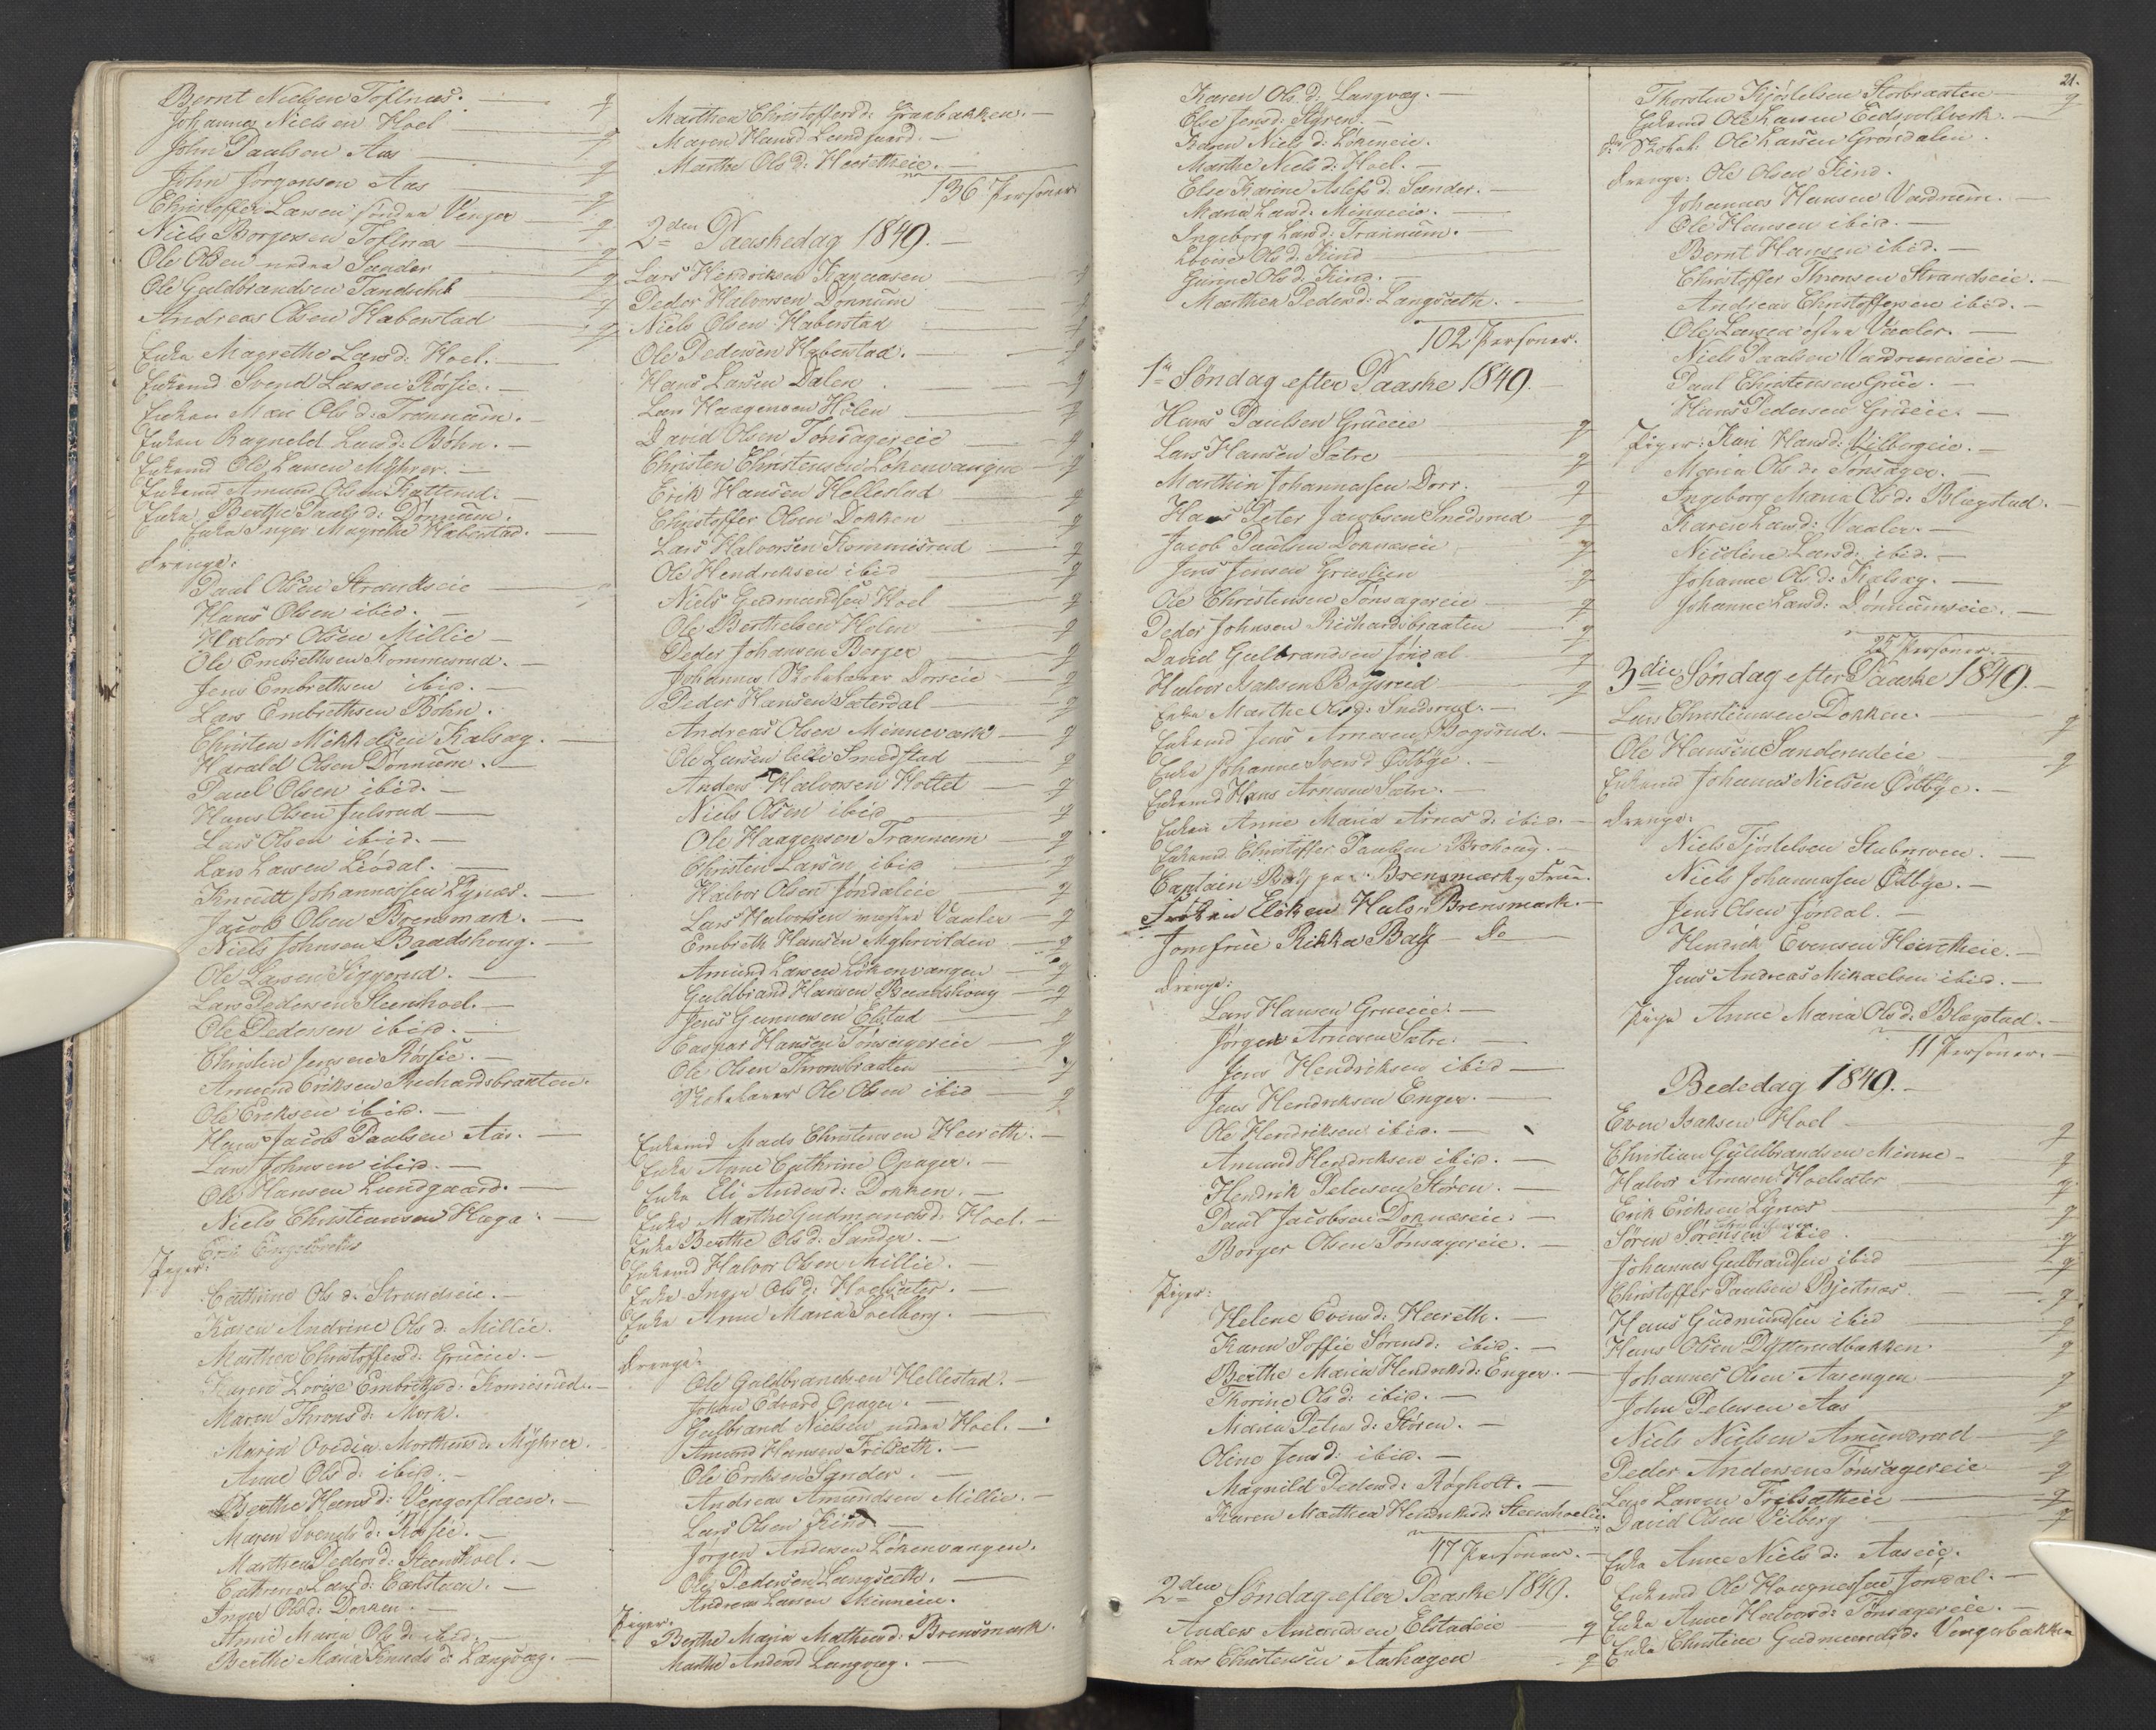 Bernt Nielsen Toftnæs. — q
Johannes Nielsen Hoel — q
John Paulsen Aas — q
John Jørgensen Aas — q
Christoffer Larsen søndra Venger — q
Niels Borgersen Toftnæs — q
Ole Olsen nedra Sander — q
Ole Guldbrandsen — q
Andreas Olsen Habberstad — q
Enke Magrethe Larsd: Hoel. —
Enkemd Svend Larsen Røssie. —
Enken Mari Ols d: Trannum. —
Enken Ragneld Larsd: Bøhn. —
Enkemd Ole Larsen Myhrer. —
Enkemd Amund Olsen —
Enke Berthe Paals d: Dønnum. —
Enke Inger Magrethe Haberstad. —
Drenge:
Paul Olsen Strandseie —
Hans Olsen ibid. —
Halvor Olsen Millie —
Ole Embrethsen Kommisrud. —
Jens Embrethsen ibid. —
Lars Embrethsen Bøhn.
Christen Mikkelsen Kalsæg. —
Harald Olsen Dønnum. —
Paul Olsen ibid. —
Hans Olsen Julsrud —
Lars Olsen ibid. —
Lars Larsen Lisdal. —
Knudt Johannessen Lynæs. —
Jacob Olsen Brensmark. —
Niels Johnsen Baadshoug. —
Ole Larsen Siggerud. —
Lars Pedersen Steenhoel. —
Ole Pedersen ibid. —
Christen Jensen Røssie. —
Amund Eriksen Richardsbraaten.
Ole Eriksen ibid. —
Hans Jacob Paulsen Aas. —
Lars Johnsen ibid. —
Ole Hansen Lundgaard. —
Niels Christiansen Haga. —
Piger:
Cathrine Ols d: Strandseie. —
Karen Andrine Ols d: Millie.
Marthea Christoffersd: Grueeie. —
Karen Lovise Embrethsd: Komisrud. —
Maren Throns d: Mork.
Maren Ovedia Morthens d: Myhrer.
Anne Ols d: ibid. —
Berthe Hans d: Vengerflaen. —
Maren Svends d: Røssie. —
Marthea Peders d: Steenhoel. —
Cathrine Lars d: Carlstuen. —
Inger Ols d: Dokken. —
Anne Maria Ols d: ibid. —
Berthe Maria Knuds d: Langsæg. —
Marthea Christoffersd: Graabakken. —
Maren Hansd Lundgaard. —
Marthe Ols d: Heeretheie. —
136 Personer
2den Paaskedag 1849. —
Lars Hendriksen — q
Peder Halvorsen Dønnum — q
Niels Olsen Haberstad — q
Ole Pedersen Haberstad. — q
Hans Larsen Dalen — q
Lars Haagensen Holen — q
David Olsen Tønsagereie — q
Christen Christensen Løkenvangen — q
Erik Hansen Hellestad — q
Christoffer Olsen Dokken — q
Lars Halvorsen Kommisrud — q
Ole Hendriksen ibid — q
Niels Gudmundsen Hoel — q
Ole Berthelsen Holen — q
Peder Johansen Berger — q
Johannes Skolelærer Dorreie — q
Peder Hansen Sæterdal — q
Andreas Olsen Minnevære — q
Ole Larsen lille Smedstad — q
Anders Halvorsen Hottet — q
Niels Olsen ibid — q
Ole Haagensen Trannum — q
Christen Larsen ibid — q
Halvor Olsen Jøndaleie — q
Lars Halvorsen vestre Vaaler — q
Embreth Hansen Myhrvolden — q
Amund Larsen Løkenvangen — q
Guldbrand Hansen Baadshoug — q
Jens Gunnersen Elstad — q
Caspar Hansen Tønsagereie — q
Ole Olsen Thronsbraaten — q
Skolelærer Ole Olsen ibid — q
Enkemd Mads Christensen Heereth. —
Enke Anne Cathrine Opager. —
Enke Eli Anders d: Dokken. —
Enke Marthe Gudmunds d. Hoel. —
Enke Berthe Ols d: Sander. —
Enkemd Halvor Olsen Millie. —
Enke Inger Ols d: Hoelsæter. —
Enke Anne Maria Svelberg. —
Drenge:
Ole Guldbrandsen Hellestad. —
Johan Edvard Opager. —
Gulbrand Nielsen nedra Hoel. —
Amund Hansen Frilsæth. —
Ole Eriksen Sander. —
Andreas Amundsen Millie. —
Lars Olsen Kind —
Jørgen Andersen Løkenvangen.
Ole Pedersen Langseeth. —
Andreas Larsen Minneeie.
Piger:
Berthe Maria Mathiesd: Brensmark.
Marthe Andersd Langsæg. —
Karen Ols d: Langvæg. —
Else Jens d: Styren. —
Karen Niels d: Løkeneie.
Marthe Niels d: Hoel. —
Else Karine Aslefs d: Sander. —
Maria Larsd: Minneeie. —
Ingeborg Larsd: Trannum. —
Lovise Ols d: Kind —
Gunne Ols d: Kind. —
Marthea Peders d: Langseeth. —
102 Personer.
1ste Søndag efter Paaske 1849. —
Hans Paulsen Grueeie — q
Lars Hansen Sætre — q
Marthin Johannessen Dorr. — q
Hans Peter Jacobsen Smedsrud — q
Jacob Paulsen Doknæseie — q
Jens Jensen Grieslien — q
Ole Christensen Tønsagereie — q
Peder Johnsen Richardsbraaten — q
David Gulbrandsen Jøndal — q
Halvor Isaksen Bøgsrud — q
Enke Marthe Ols d: Smedsrud. —
Enkemd Jens Arnesen Bøgsrud. —
Enke Johanne Ivers d Østbye. —
Enkemd Hans Arnesen Sætre. —
Enken Anne Maria Arnes d: ibid. —
Enkemd Christoffer Paulsen Brohoug. —
Captain Baÿ paa Brensmark & Frue. —
Frøken Elisken Hals: Brensmark. —
Jomfrue Rikka Baÿ — do —
Drenge:
Lars Hansen Grueeie. —
Jørgen Arnesen Sætre. —
Jens Hendriksen ibid —
Jens Hendriksen Enger. —
Ole Hendriksen ibid. —
Amund Hendriksen ibid. —
Hendrik Petersen Støren. —
Paul Jacobsen Doknæseie. —
Borger Olsen Tønsagereie. —
Piger:
Helene Evens d: Heereth. —
Karen Soffie Sørens d: ibid. —
Berthe Maria Hendriks d: Enger. —
Thorine Ols d: ibid. —
Maria Peters d: Støren. —
Oline Jens d: ibid. —
Magnild Peders d: Røgholt. —
Karen Marthea Hendriks d: Steenhoelie.
47 Personer. —
2den Søndag efter Paaske 1849.
Anders Amundsen Elstadeie — q
Lars Christensen Aashagen — q
21.
Thorsten Kjøstelsen Storbraaten — q
Enkemd Ole Larsen Eidsvoldværk. —
Skoleh. Ole Larsen Grønsdalen.
Drenge: Ole Olsen Kind.
Johannes Hansen Vardrum. —
Ole Hansen ibid. —
Bernt Hansen ibid. —
Christoffer Thronsen Strandseie. —
Andreas Christoffersen ibid. —
Ole Larsen østra Vaaler. —
Niels Paulsen Vardrumseie —
Paul Christensen Grue. —
Hans Pedersen Grueeie —
Piger: Kari Hansd: Vilbergeie. —
Maria Ols d: Tønsager. —
Ingeborg Maria Ols d: Blegstad. —
Karen Larsd: Vaaler. —
Nicoline Larsd: ibid. —
Johanne Ols d: Kalsæg. —
Johanne Larsd: Dønnumseie. —
25 Personer. —
3die Søndag efter Paaske 1849. —
Lars Christensen Dokken. — q
Ole Hansen Sanderudeie — q
Enkemd Johannes Nielsen Østbye. —
Drenge:
Niels Kjøstelsen Stubmoen. —
Niels Johannessen Østbye. —
Jens Olsen Jøndal. —
Hendrik Evensen Heeretheie. —
Jens Andreas Mikaelsen ibid. —
Pige Anne Maria Ols d: Blegstad. —
11 Personer. —
Bededag 1849. —
Even Isaksen Hoel — q
Christian Guldbrandsen Minne — q
Halvor Arnesen Hoelsæter — q
Erik Eriksen Lynæs — q
Søren Sørensen ibid — q
Johannes Gulbrandsen ibid — q
Christoffer Paulsen Bjertnæs. — q
Hans Gudmundsen ibid — q
Hans Olsen Dytterudbakken — q
Johannes Olsen Aasengen — q
John Petersen Aas — q
Niels Nielsen Amundrud — q
Peder Andersen Tønsagereie — q
Lars Larsen Frilsætheie — q
David Olsen Vilberg — q
Enke Anne Niels d: Aaseie.
Enkemd Ole Haagnessen Jøndal. —
Enke Anne Halvors d: Tønsagereie. —
Enke Christine Gudmunds d: Vengerbakken